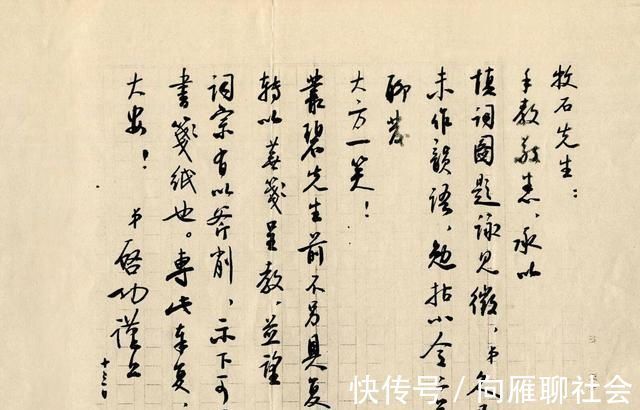 牧石先生：
手教敬悉，承以
填词图題詠見徵，弟久
未作韻語，勉拈小令一
聊
大方一笑！
叢碧先生前不另具复
轉以蕪箋呈教，並望
词宗有以斧削，示下可
書箋纸也。專此奉复，
大安！
弟启功谨上
十三日
快传号 / 向雁聊社会